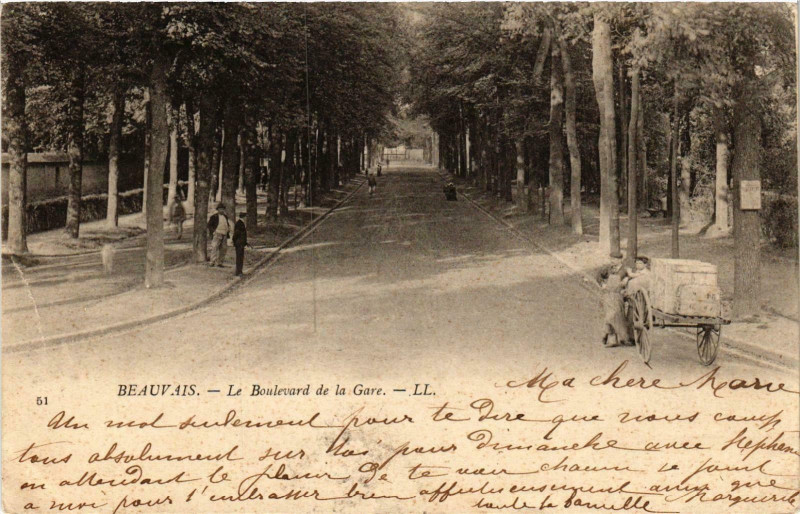 BEAUVAIS. — Le Boulevard de la Gare. — LL.
51
Ma chère Marie
Un mot seulement pour te Dire que nous comp
tons absolument sur toi pour Dimanche avec Stephen
en attendant le plaisir de te voir chacun se joint
a moi pour t'embrasser bien affectueusement ainsi que
toute la famille Marguerite